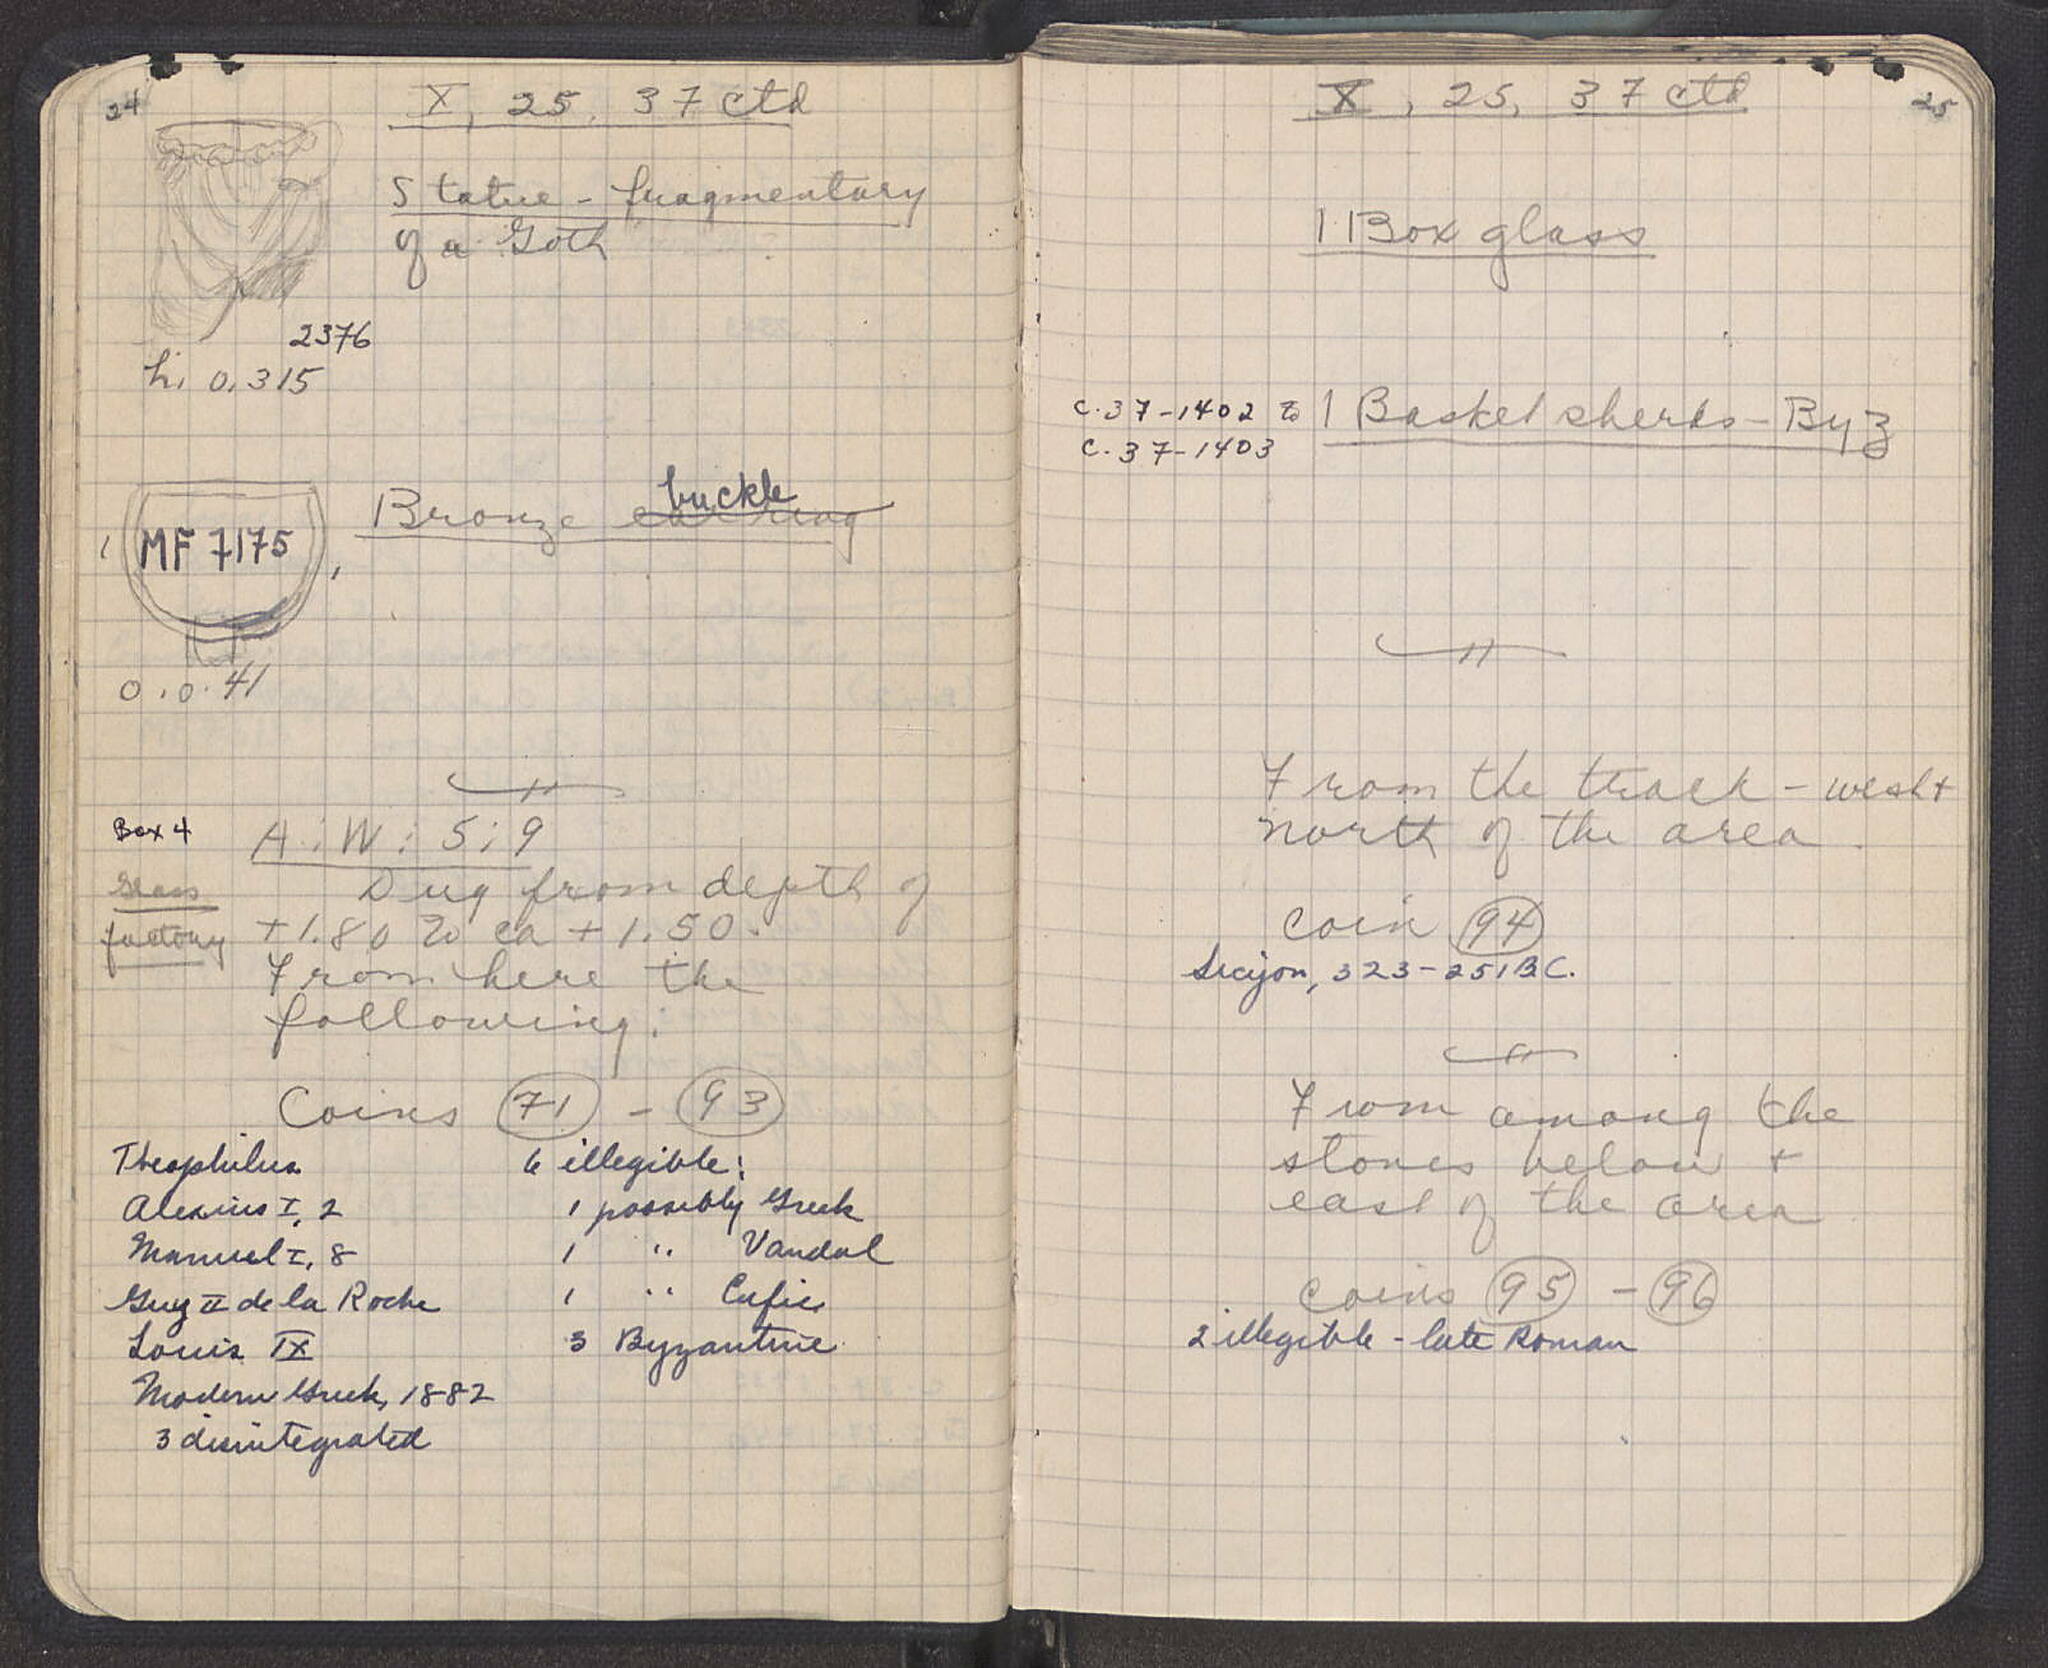 24
X, 25, 37 ctd
Statue - fragmentary
of a Goth
2376
h. 0.315
Bronze earring buckle
MF 7175
0.0.41
Box 4
A: W: 5: 9
Glass
factory
Dug from depth of
+1.80 to ca +1.50.
From here the
following:
Coins 71 - 93
Theophilus
Alexius I, 2
Manuel I, 8
Guy II de la Roche
Louis IX
Modern Greek, 1882
3 disintegrated
6 illegible:
1 possibly Greek
1 " Vandal
1 " Cufic
3 Byzantine
X, 25, 37 ctd
25
1 Box glass
C.37-1402 to
C.37-1403
1 Basket sherds - Byz
From the track - west +
north of the area.
coin 94
Sicyon, 323-251 B.C.
From among the
stones below +
east of the area
coins 95 - 96
2 illegible - late Roman